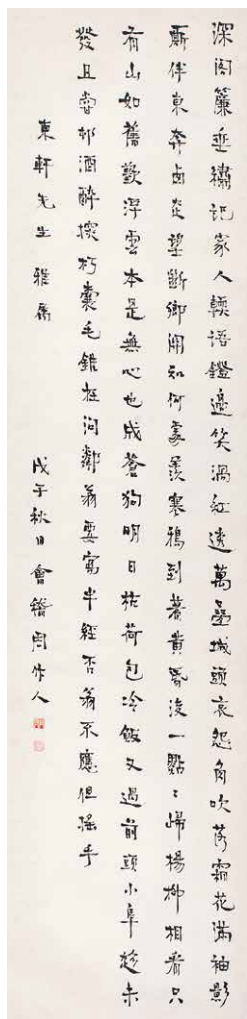 深閣簾垂繡記家人輭語鐙邊笑渦紅透萬疊城頭哀怨角吹落霜花滿袖影
廝伴東奔卤走望斷鄉關知何處羨寒鴉到著黃昏後一點〻歸楊柳相看只
有山如舊歎浮雲本是無心也成蒼狗明日枯荷包冷飯又過前頭小阜趁未
發且嘗邨酒醉探朽囊毛錐在問鄰翁要寫牛經否翁不應但搖手
東軒先生 雅屬
戊子秋日會稽周作人